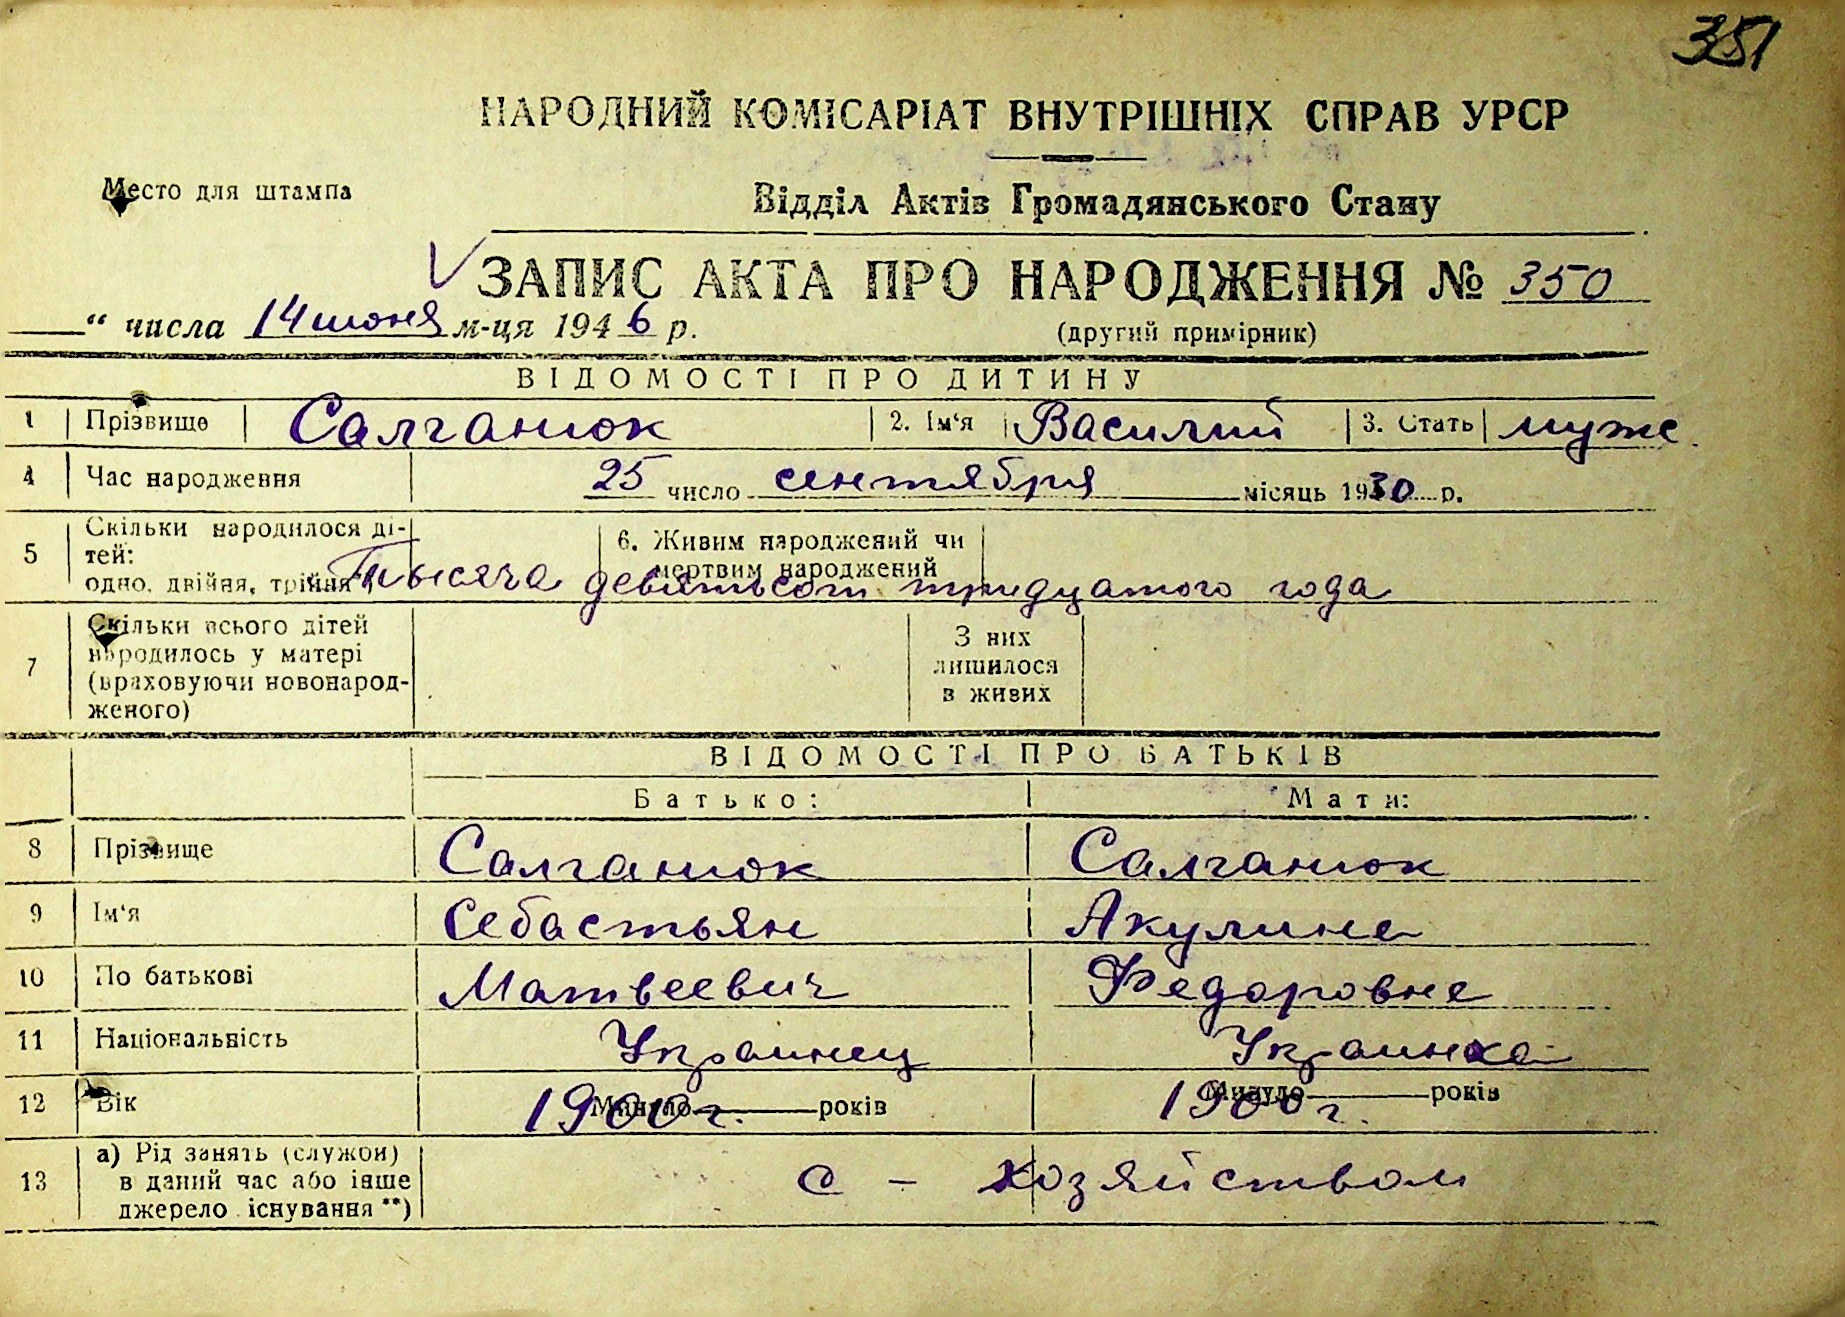 351
НАРОДНИЙ КОМІСАРІАТ ВНУТРІШНІХ СПРАВ УРСР
Место для штампа
Відділ Актів Громадянського Стану
ЗАПИС АКТА ПРО НАРОДЖЕННЯ № 350
“ числа 14 июня м-ця 1946 р.
(другий примірник)
ВІДОМОСТІ ПРО ДИТИНУ
1 Прізвище Салганюк 2. Ім‘я Василий 3. Стать муже
4 Час народження 25 число сентября місяць 1930 р.
5 Скільки народилося ді-
тей:
одно, двійня, трійня
6. Живим народжений чи
мертвим народжений
Тысяча девятьсот тридцатого года
7 Скільки всього дітей
народилось у матері
(враховуючи новонарод-
женого)
З них
лишилося
в живих
ВІДОМОСТІ ПРО БАТЬКІВ
Батько: Мати:
8 Прізвище Салганюк Салганюк
9 Ім‘я Себастьян Акулина
10 По батькові Матвеевич Федоровна
11 Національність Украинец Украинка
12 Вік 1900 г. Минуло років 1900 г. Минуло років
13 а) Рід занять (служби)
в даний час або інше
джерело існування **)
с - хозяйством